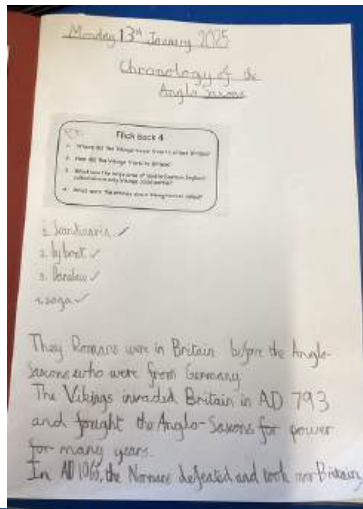 Monday 13th January 2025
Chronology of the
Anglo Saxons
Flash back 4
1. Where did the Vikings travel from to attack Britain?
2. How did the Vikings travel to Britain?
3. What was the large area of land in Eastern England
4. What were the stories about Viking called?
1. Scandinavia ✓
2. by boat ✓
3. Danelaw ✓
4. saga ✓
They Romans were in Britain before the Anglo-
Saxons who were from Germany
The Vikings invaded Britain in AD 793
and fought the Anglo-Saxons for power
for many years.
In AD 1066, the Normans defeated and took over Britain